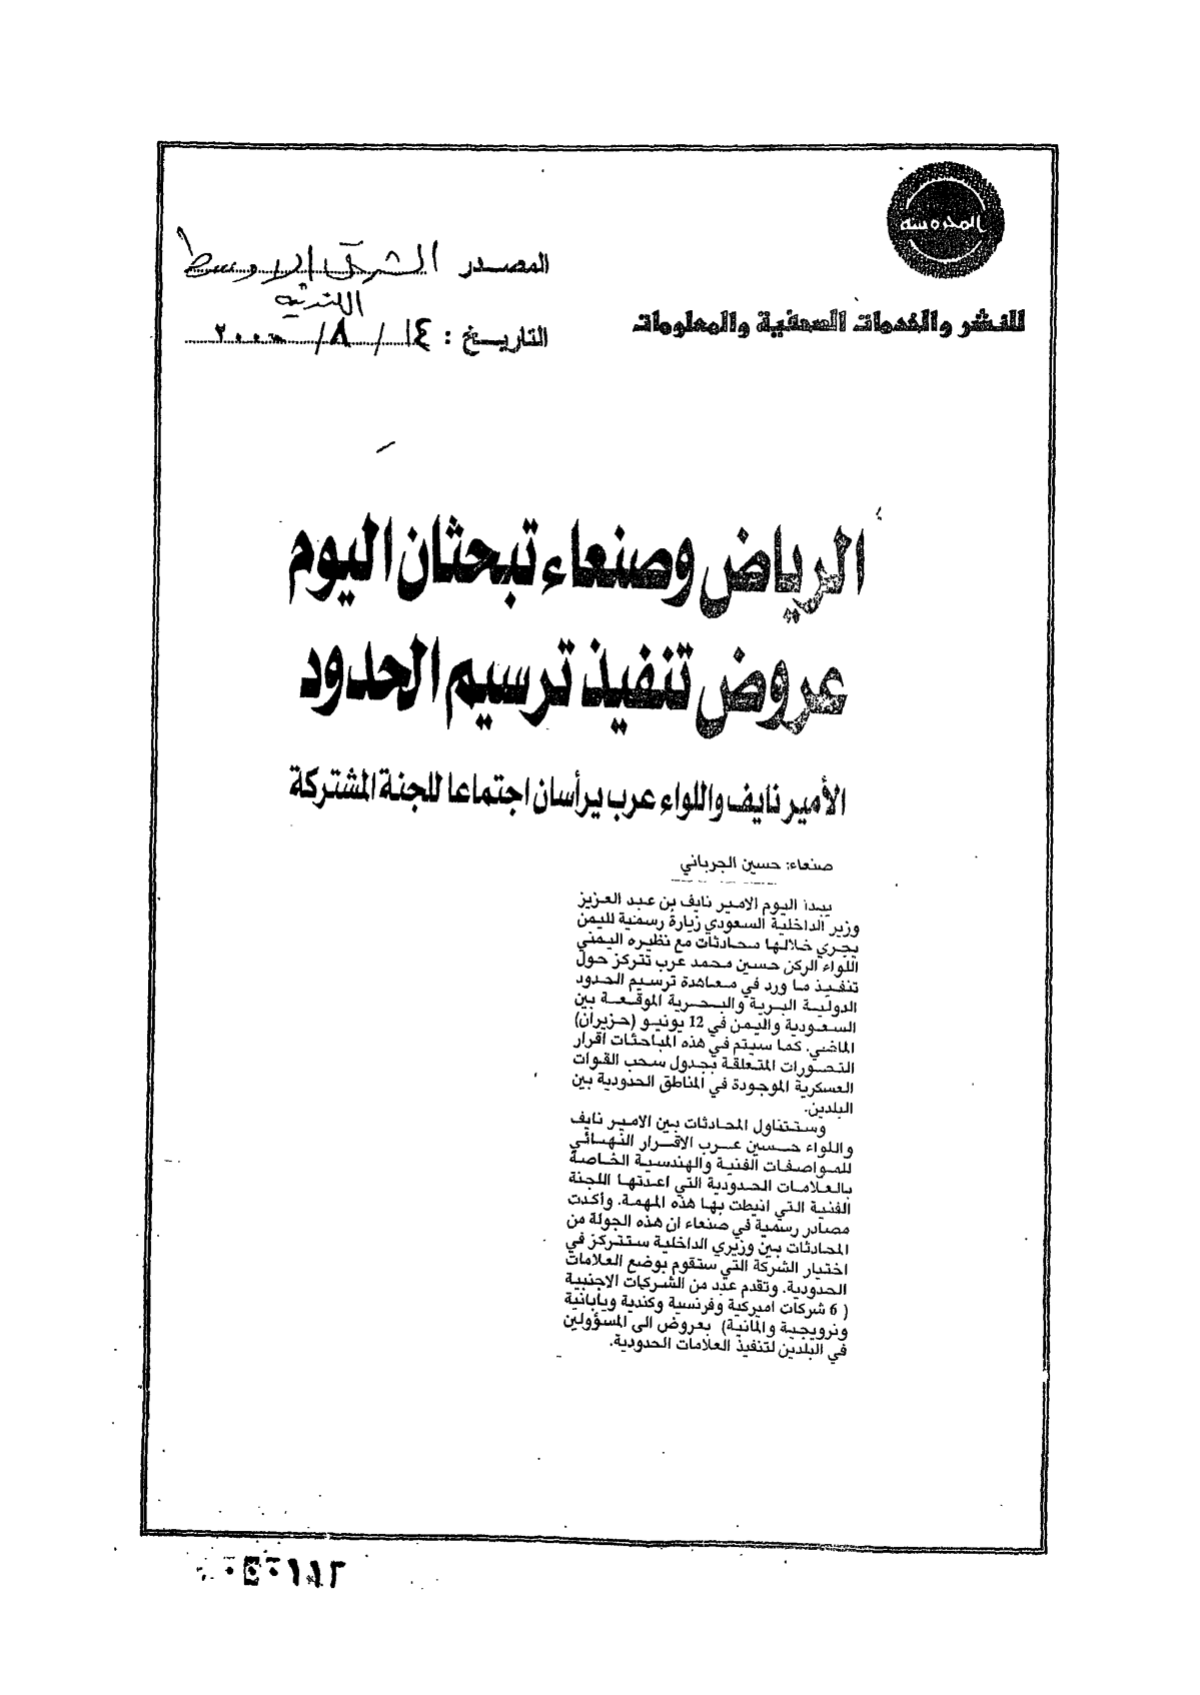 المحروسة
للنشر والخدمات الصحفية والمعلومات
المصدر الشرق الاوسط
اللندنية
التاريخ : ١٤ / ٨ / ٢٠٠٠
الرياض وصنعاء تبحثان اليوم
عروض تنفيذ ترسيم الحدود
الأمير نايف واللواء عرب يرأسان اجتماعا للجنة المشتركة
صنعاء: حسين الجرباني
يبدا اليوم الامير نايف بن عبد العزيز
وزير الداخلية السعودي زيارة رسمية لليمن
يجري خلالها محادثات مع نظيره اليمني
اللواء الركن حسين محمد عرب تتركز حول
تنفيذ ما ورد في معاهدة ترسيم الحدود
الدولية البرية والبحرية الموقعة بين
السعودية واليمن في 12 يونيو (حزيران)
الماضي. كما سيتم في هذه المباحثات اقرار
التصورات المتعلقة بجدول سحب القوات
العسكرية الموجودة في المناطق الحدودية بين
البلدين.
وستتناول المحادثات بين الامير نايف
واللواء حسين عرب الاقرار النهائي
للمواصفات الفنية والهندسية الخاصة
بالعلامات الحدودية التي اعدتها اللجنة
الفنية التي انيطت بها هذه المهمة. واكدت
مصادر رسمية في صنعاء ان هذه الجولة من
المحادثات بين وزيري الداخلية ستتركز في
اختيار الشركة التي ستقوم بوضع العلامات
الحدودية. وتقدم عدد من الشركات الاجنبية
( 6 شركات اميركية وفرنسية وكندية ويابانية
ونرويجية والمانية) بعروض الى المسؤولين
في البلدين لتنفيذ العلامات الحدودية.